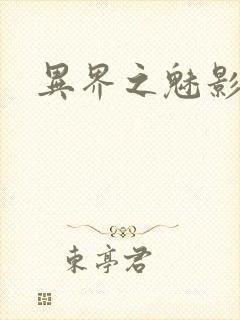 異界之魅影
東亭君